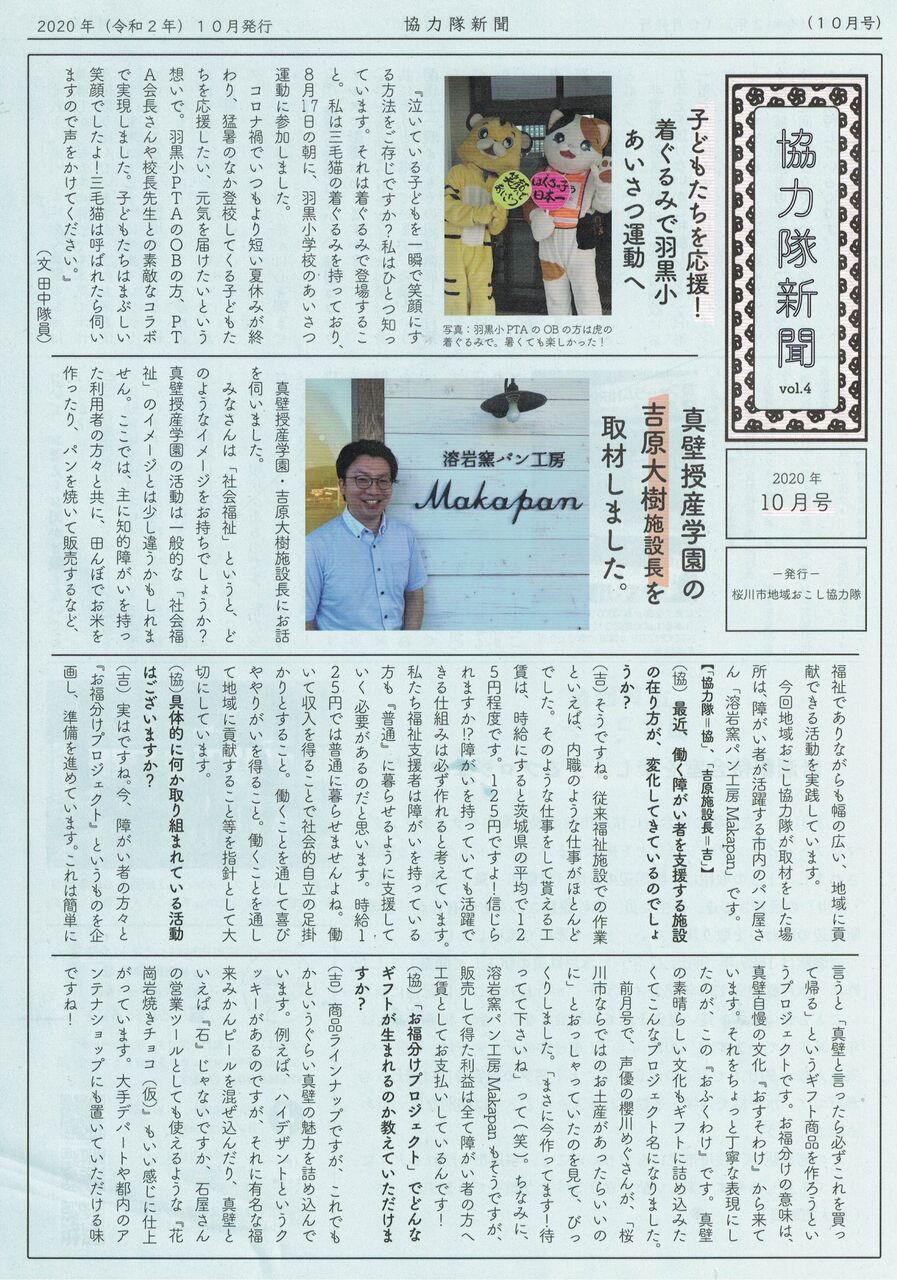 2020年（令和２年）１０月発行
協力隊新聞
（１０月号）
協力隊新聞
vol.4
2020年
10月号
－発行－
桜川市地域おこし協力隊
子どもたちを応援！
着ぐるみで羽黒小
あいさつ運動へ
笑顔で
あいさつ
はぐろっ子
日本一
写真：羽黒小PTAのOBの方は虎の
着ぐるみで。暑くても楽しかった！
『泣いている子どもを一瞬で笑顔にす
る方法をご存じですか？私はひとつ知っ
ています。それは着ぐるみで登場するこ
と。私は三毛猫の着ぐるみを持っており、
８月17日の朝に、羽黒小学校のあいさつ
運動に参加しました。
コロナ禍でいつもより短い夏休みが終
わり、猛暑のなか登校してくる子どもた
ちを応援したい、元気を届けたいという
想いで。羽黒小ＰＴＡのＯＢの方、ＰＴ
Ａ会長さんや校長先生との素敵なコラボ
で実現しました。子どもたちはまぶしい
笑顔でしたよ！三毛猫は呼ばれたら伺い
ますので声をかけてください。』
（文 田中隊員）
真壁授産学園の
吉原大樹施設長を
取材しました。
溶岩窯パン工房
Makapan
真壁授産学園・吉原大樹施設長にお話
を伺いました。
みなさんは「社会福祉」というと、ど
のようなイメージをお持ちでしょうか？
真壁授産学園の活動は一般的な「社会福
祉」のイメージとは少し違うかもしれま
せん。ここでは、主に知的障がいを持っ
た利用者の方々と共に、田んぼでお米を
作ったり、パンを焼いて販売するなど、
福祉でありながらも幅の広い、地域に貢
献できる活動を実践しています。
今回地域おこし協力隊が取材をした場
所は、障がい者が活躍する市内のパン屋さ
ん「溶岩窯パン工房Makapan」です。
【協力隊＝協」、吉原施設長＝吉】
（協）最近、働く障がい者を支援する施設
の在り方が、変化してきているのでしょ
うか？
（吉）そうですね。従来福祉施設での作業
といえば、内職のような仕事がほとんど
でした。そのような仕事をして貰える工
賃は、時給にすると茨城県の平均で１２
５円程度です。１２５円ですよ！信じら
れますか!?障がいを持っていても活躍で
きる仕組みは必ず作れると考えています。
私たち福祉支援者は障がいを持っている
方も『普通』に暮らせるように支援して
いく必要があるのだと思います。時給１
２５円では普通に暮らせませんよね。働
いて収入を得ることで社会的自立の足掛
かりとすること。働くことを通して喜び
ややりがいを得ること。働くことを通し
て地域に貢献すること等を指針として大
切にしています。
（協）具体的に何か取り組まれている活動
はございますか？
（吉）実はですね。今、障がい者の方々と
『お福分けプロジェクト』というものを企
画し、準備を進めています。これは簡単に
言うと「真壁と言ったら必ずこれを買っ
て帰る」というギフト商品を作ろうとい
うプロジェクトです。お福分けの意味は、
真壁自慢の文化『おすそわけ』から来て
います。それをちょっと丁寧な表現にし
たのが、この『おふくわけ』です。真壁
の素晴らしい文化もギフトに詰め込みた
くてこんなプロジェクト名になりました。
前月号で、声優の櫻川めぐさんが、「桜
川市ならではのお土産があったらいいの
に」とおっしゃっていたのを見て、びっ
くりしました。「まさに今作ってます！待
ってて下さいね」って（笑）。ちなみに、
溶岩窯パン工房Makapanもそうですが、
販売して得た利益は全て障がい者の方へ
工賃としてお支払いしているんです！
（協）「お福分けプロジェクト」でどんな
ギフトが生まれるのか教えていただけま
すか？
（吉）商品ラインナップですが、これでも
かというぐらい真壁の魅力を詰め込んで
います。例えば、ハイデザントというク
ッキーがあるのですが、それに有名な福
来みかんピールを混ぜ込んだり、真壁と
いえば『石』じゃないですか、石屋さん
の営業ツールとしても使えるような『花
崗岩焼きチョコ（仮）』もいい感じに仕上
がっています。大手デパートや都内のア
ンテナショップにも置いていただける味
ですね！